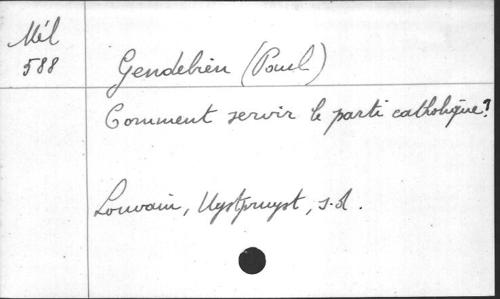 Mél
588
Gendebien (Paul)
Comment servir le parti catholique?
Louvain, Uystpruyst, s.d.